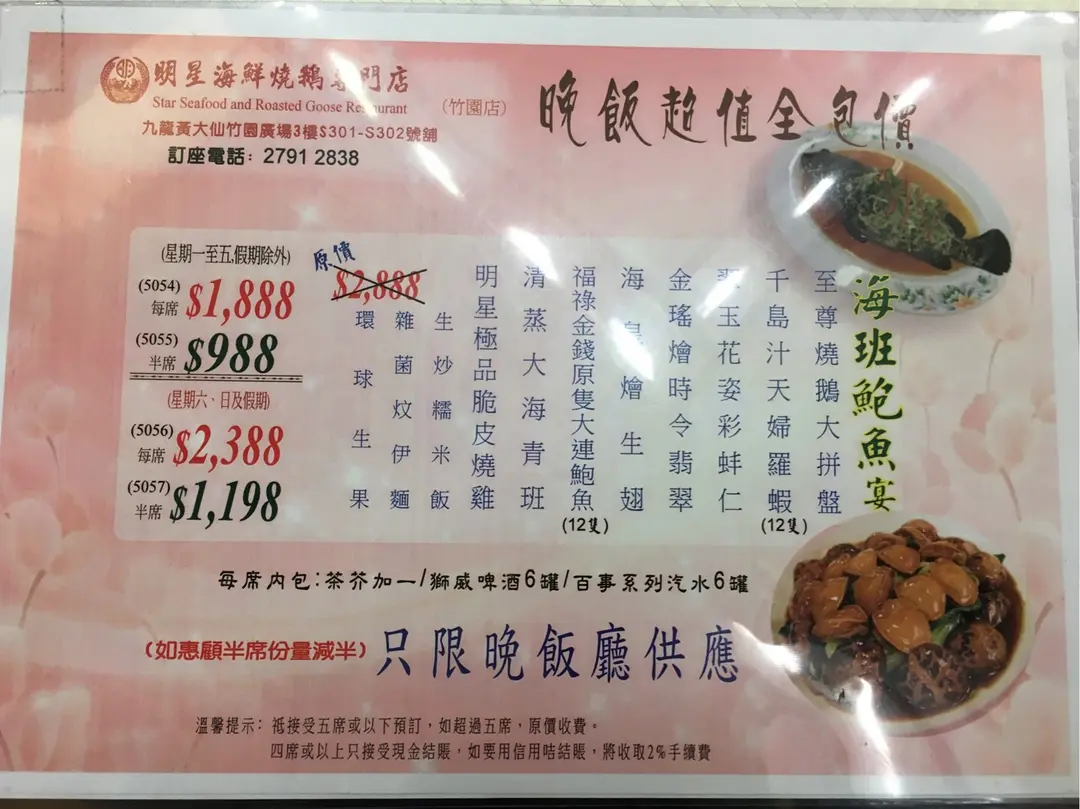 明星海鮮燒鵝專門店
Star Seafood and Roasted Goose Restaurant
(竹園店)
九龍黃大仙竹園廣場3樓S301-S302號舖
訂座電話：2791 2838
晚飯超值全包價
海班鮑魚宴
至尊燒鵝大拼盤
千島汁天婦羅蝦
(12隻)
翠玉花姿彩蚌仁
金瑤燴時令翡翠
海皇燴生翅
福祿金錢原隻大連鮑魚
(12隻)
清蒸大海青班
明星極品脆皮燒雞
生炒糯米飯
雜菌炆伊麵
環球生果
原價
$2,888
(星期一至五,假期除外)
(5054)
每席 $1,888
(5055)
半席 $988
(星期六、日及假期)
(5056)
每席 $2,388
(5057)
半席 $1,198
每席内包：茶芥加一/獅威啤酒6罐/百事系列汽水6罐
(如惠顧半席份量減半) 只限晚飯廳供應
溫馨提示：祗接受五席或以下預訂，如超過五席，原價收費。
四席或以上只接受現金結賬，如要用信用咭結賬，將收取2%手續費